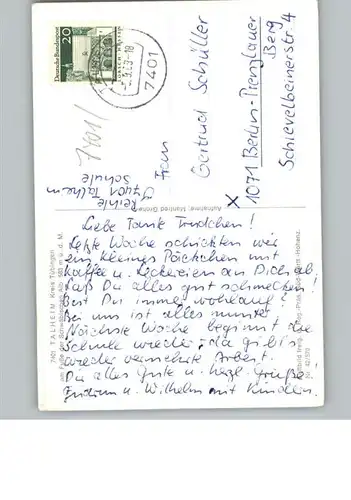 Liebe Tante Trudchen!
Letzte Woche schickten wir
ein kleines Päckchen mit
Kaffee u. Leckereien an Dich ab.
Laß Du alles gut schmecken!
Bist Du immer wohlauf?
Bei uns ist alles munter.
Nächste Woche beginnt die
Schule wieder, da gibt's
wieder vermehrte Arbeit.
Dir alles Gute u. herzl. Grüße!
Gudrun u. Wilhelm mit Kindern.
Reihle
7401 Talheim
Schule
7401
Deutsche Bundespost
20
7401
Frau
Gertrud Schüller
X
1071 Berlin-Prenzlauer
Berg
Schievelbeinerstr. 4
Aufnahme: Manfred Grohe
7401 TALHEIM Kreis Tübingen
am Fuße der Schwäbischen Alb 585 m ü. d. M.